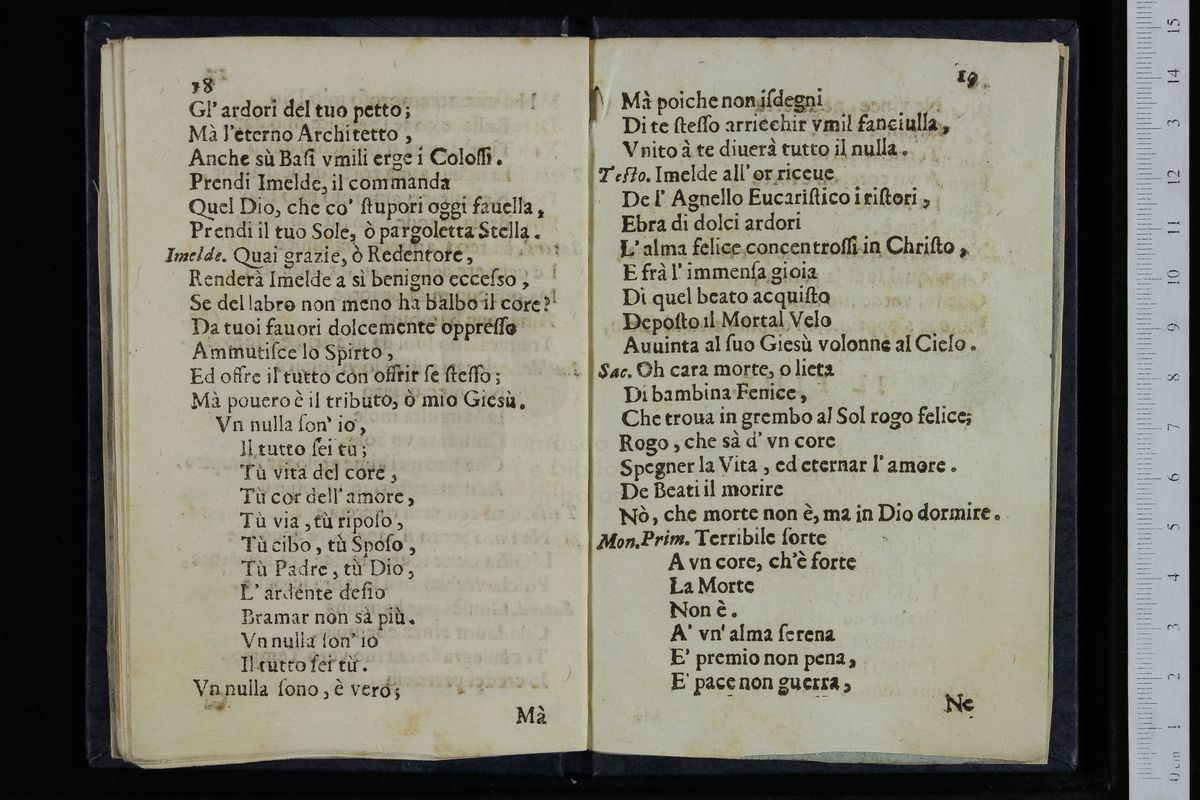 18
Gl' ardori del tuo petto;
Mà l'eterno Architetto,
Anche sù Baſi vmili erge i Coloſſi.
Prendi Imelde, il commanda
Quel Dio, che co' ſtupori oggi fauella,
Prendi il tuo Sole, ò pargoletta Stella.
Imelde. Quai grazie, ò Redentore,
Renderà Imelde a sì benigno ecceſso,
Se del labro non meno ha balbo il core?
Da tuoi fauori dolcemente oppreſſo
Ammutiſce lo Spirto,
Ed offre il tutto con offrir ſe ſteſſo;
Mà pouero è il tributo, ò mio Giesù.
Vn nulla ſon' io,
Il tutto ſei tù;
Tù vita del core,
Tù cor dell' amore,
Tù via, tù ripoſo,
Tù cibo, tù Spoſo,
Tù Padre, tù Dio,
L' ardente deſio
Bramar non sà più.
Vn nulla ſon' io
Il tutto ſei tù.
Vn nulla ſono, è vero;
Mà
19
Mà poiche non iſdegni
Di te ſteſſo arriechir vmil fanciulla,
Vnito à te diuerà tutto il nulla.
Teſto. Imelde all' or riceue
De l' Agnello Eucariſtico i riſtori,
Ebra di dolci ardori
L' alma felice concentroſſi in Chriſto,
E frà l' immenſa gioia
Di quel beato acquiſto
Depoſto il Mortal Velo
Auuinta al ſuo Giesù volonne al Cielo.
Sac. Oh cara morte, o lieta
Di bambina Fenice,
Che troua in grembo al Sol rogo felice;
Rogo, che sà d' vn core
Spegner la Vita, ed eternar l' amore.
De Beati il morire
Nò, che morte non è, ma in Dio dormire.
Mon. Prim. Terribile ſorte
A vn core, ch'è forte
La Morte
Non è.
A' vn' alma ſerena
E' premio non pena,
E' pace non guerra,
Ne
15
14
13
12
11
10
9
8
7
6
5
4
3
2
1
0 cm